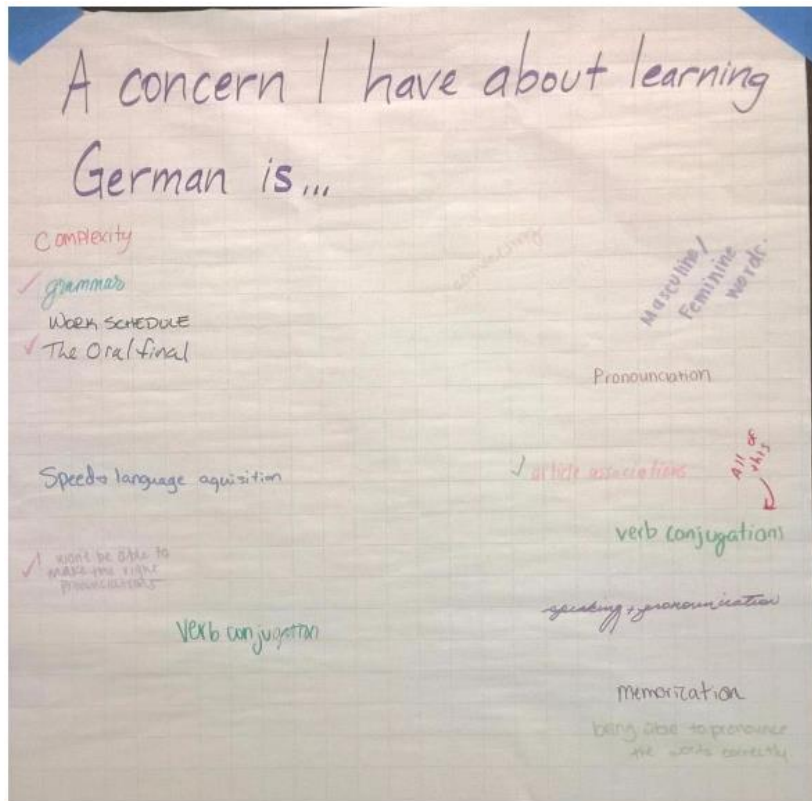 A concern I have about learning
German is...
Complexity
grammar
WORK SCHEDULE
The Oral final
Speed + language aquisition
won't be able to
make the right
pronounciations
verb conjugation
Masculine/
Feminine
words.
Pronounciation
article associations
All of
this
verb conjugations
speaking + pronounication
memorization
being able to pronounce
the words correctly